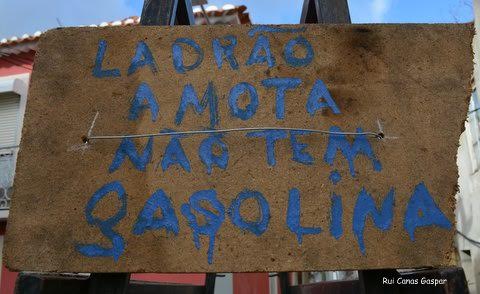 LADRÃO
A MOTA
NÃO TEM
GASOLiNA
Rui Canas Gaspar